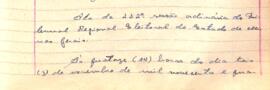 Ata da 222ª sessão ordinária do Tri-
bunal Regional Eleitoral do Estado de Mi-
nas Gerais.
Às quatorze (14) horas do dia tres
(3) de novembro de mil novecentos e qua-